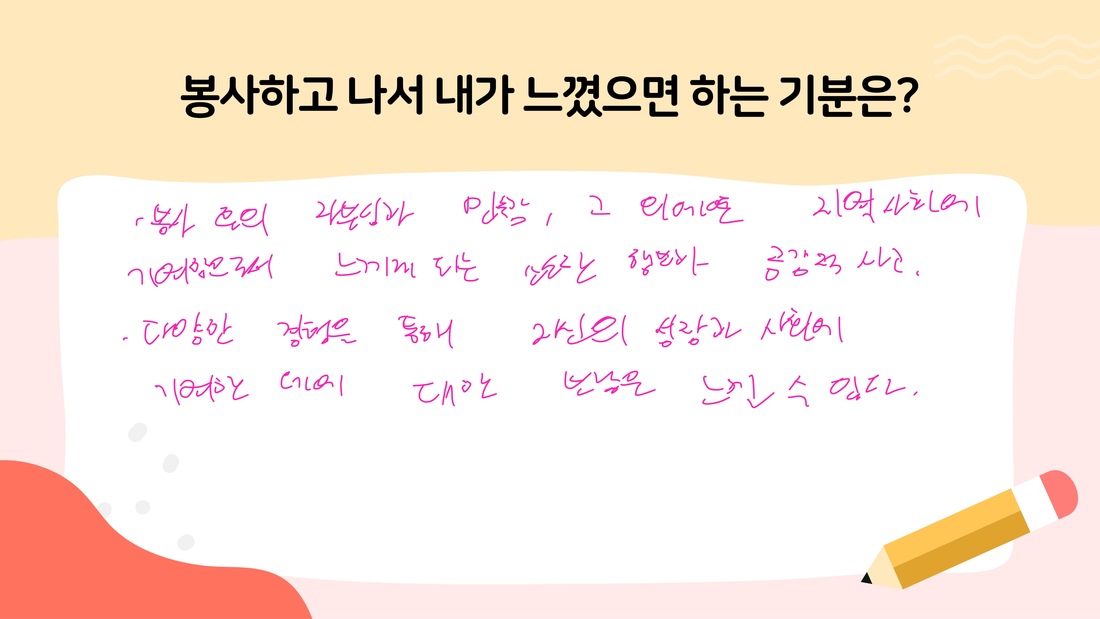 봉사하고 나서 내가 느꼈으면 하는 기분은?
· 봉사 후의 자부심과 만족감, 그 외에도 지역사회에
기여함으로써 느끼게 되는 행복과 공감적 사고.
· 다양한 경험을 통해 자신의 성장과 사회에
기여한 데에 대한 보람을 느낄 수 있다.